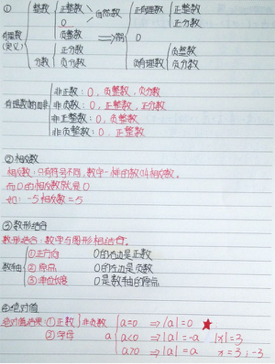 ①
整数 正整数 自然数 正有理数 正整数
0 正分数
有理数 负整数 分为 0
(定义) 正分数 负整数
分数 负分数 负有理数 负分数
非正数：0，负整数，负分数
非负数：0，正整数，正分数
非正整数：0，负整数
非负整数：0，正整数
②相反数
相反数：只有符号不同，数字一样的数叫相反数。
而0的相反数就是0
如：-5相反数=5
③数形结合
数形结合：数字与图形相结合。
数轴 ①正方向 0的右边是正数
②原点 0的左边是负数
③单位长度 0是数轴的原点
④绝对值
①正数 非负数 a=0 ⇒ |a|=0 ★
②字母 a a<0 ⇒ |a|=-a |x|=3
a>0 ⇒ |a|=a x=3；-3